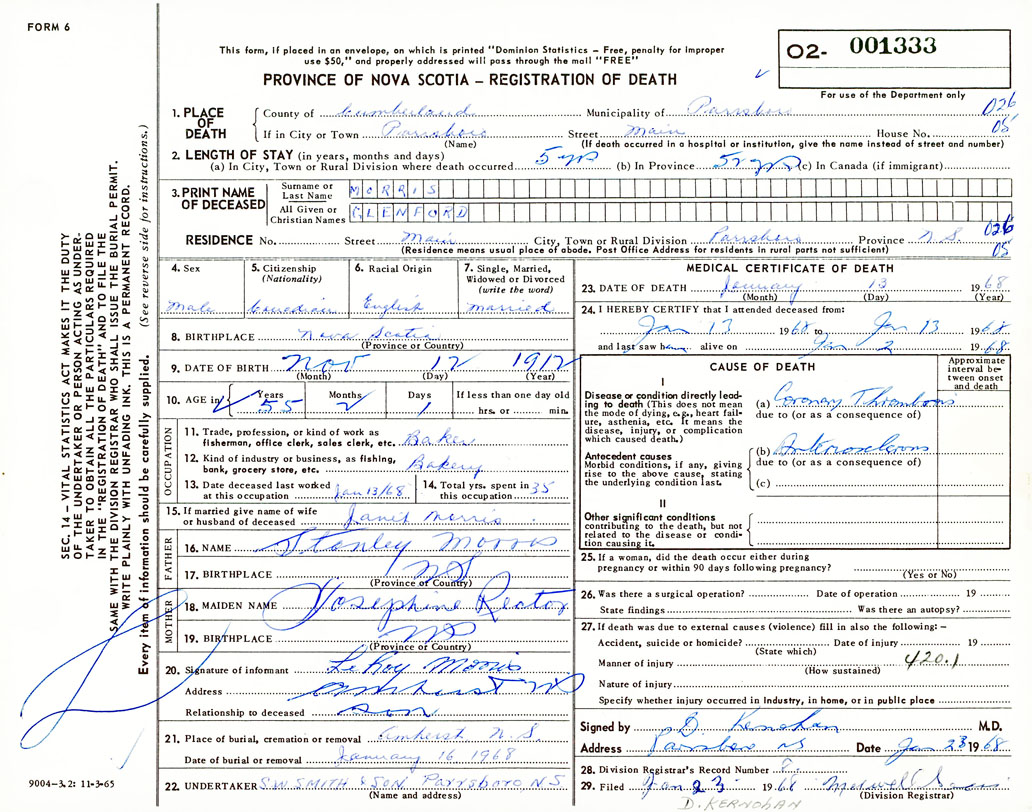 FORM 6
This form, if placed in an envelope, on which is printed "Dominion Statistics – Free, penalty for improper
use $50," and properly addressed will pass through the mail "FREE"
PROVINCE OF NOVA SCOTIA – REGISTRATION OF DEATH
O2- 001333
For use of the Department only
1. PLACE OF DEATH
County of Cumberland Municipality of Parrsboro 026
If in City or Town Parrsboro Street Main House No. 05
(Name) (If death occurred in a hospital or institution, give the name instead of street and number)
2. LENGTH OF STAY (in years, months and days)
(a) In City, Town or Rural Division where death occurred 5 yrs (b) In Province 55 yrs (c) In Canada (if immigrant)
3. PRINT NAME OF DECEASED
Surname or Last Name MORRIS
All Given or Christian Names GLENFORD
RESIDENCE No. Street Main City, Town or Rural Division Parrsboro Province N.S. 026
(Residence means usual place of abode. Post Office Address for residents in rural parts not sufficient) 05
4. Sex
male
5. Citizenship
(Nationality)
Canadian
6. Racial Origin
English
7. Single, Married,
Widowed or Divorced
(write the word)
married
8. BIRTHPLACE Nova Scotia
(Province or Country)
9. DATE OF BIRTH Nov 12 1912
(Month) (Day) (Year)
10. AGE in Years 55 Months 2 Days 1 If less than one day old
hrs. or min.
OCCUPATION
11. Trade, profession, or kind of work as
fisherman, office clerk, sales clerk, etc. Baker
12. Kind of industry or business, as fishing,
bank, grocery store, etc. Bakery
13. Date deceased last worked
at this occupation Jan 13/68
14. Total yrs. spent in
this occupation 35
15. If married give name of wife
or husband of deceased Janet Morris
FATHER
16. NAME Stanley Morris
17. BIRTHPLACE NS
(Province or Country)
MOTHER
18. MAIDEN NAME Josephine Rector
19. BIRTHPLACE NS
(Province or Country)
20. Signature of informant LeRoy Morris
Address Amherst NS
Relationship to deceased son
21. Place of burial, cremation or removal Amherst N.S.
Date of burial or removal January 16 1968
22. UNDERTAKER S.W. SMITH & SON. PARRSBORO NS
(Name and address)
MEDICAL CERTIFICATE OF DEATH
23. DATE OF DEATH January 13 1968
(Month) (Day) (Year)
24. I HEREBY CERTIFY that I attended deceased from:
Jan 13 1968 to Jan 13 1968
and last saw him alive on Jan 2 1968.
CAUSE OF DEATH
Approximate
interval be-
tween onset
and death
I
Disease or condition directly lead-
ing to death (This does not mean
the mode of dying, e.g., heart fail-
ure, asthenia, etc. It means the
disease, injury, or complication
which caused death.)
(a) Coronary Thrombosis
due to (or as a consequence of)
Antecedent causes
Morbid conditions, if any, giving
rise to the above cause, stating
the underlying condition last.
(b) Arteriosclerosis
due to (or as a consequence of)
(c)
II
Other significant conditions
contributing to the death, but not
related to the disease or condi-
tion causing it.
25. If a woman, did the death occur either during
pregnancy or within 90 days following pregnancy?
(Yes or No)
26. Was there a surgical operation? Date of operation 19
State findings Was there an autopsy?
27. If death was due to external causes (violence) fill in also the following:–
Accident, suicide or homicide? Date of injury 19
(State which)
Manner of injury 420.1
(How sustained)
Nature of injury
Specify whether injury occurred in industry, in home, or in public place
Signed by D. Kernohan M.D.
Address Parrsboro NS Date Jan 23 1968
28. Division Registrar's Record Number 2
29. Filed Jan 23 1968
(Division Registrar)
D. KERNOHAN
SEC. 14 – VITAL STATISTICS ACT MAKES IT THE DUTY
OF THE UNDERTAKER OR PERSON ACTING AS UNDER-
TAKER TO OBTAIN ALL THE PARTICULARS REQUIRED
IN THE "REGISTRATION OF DEATH" AND TO FILE THE
SAME WITH THE DIVISION REGISTRAR WHO SHALL ISSUE THE BURIAL PERMIT.
WRITE PLAINLY WITH UNFADING INK. THIS IS A PERMANENT RECORD.
Every item of information should be carefully supplied. (See reverse side for instructions.)
9004-3.2: 11-3-65